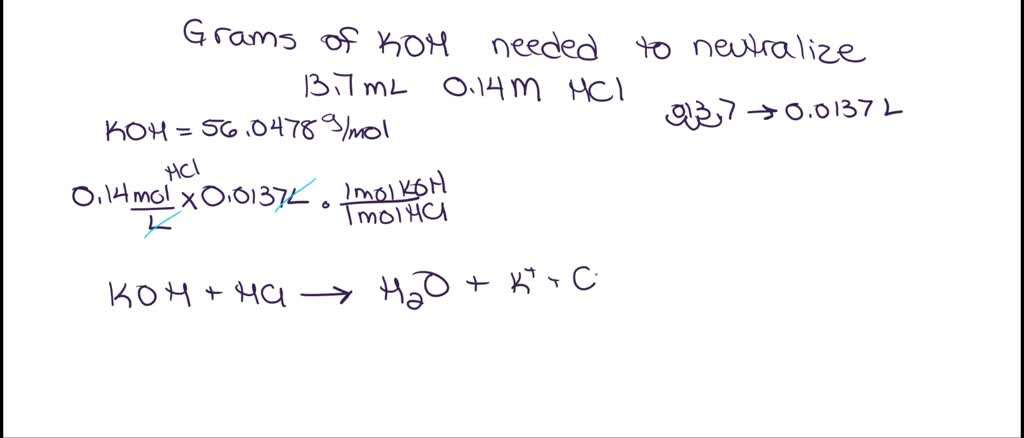 Grams of KOH needed to neutralize
13.7mL 0.14M HCl
KOH = 56.0478 g/mol
013.7 → 0.0137 L
0.14 mol HCl / L x 0.0137L · 1mol KOH / 1mol HCl
KOH + HCl → H2O + K+ + C